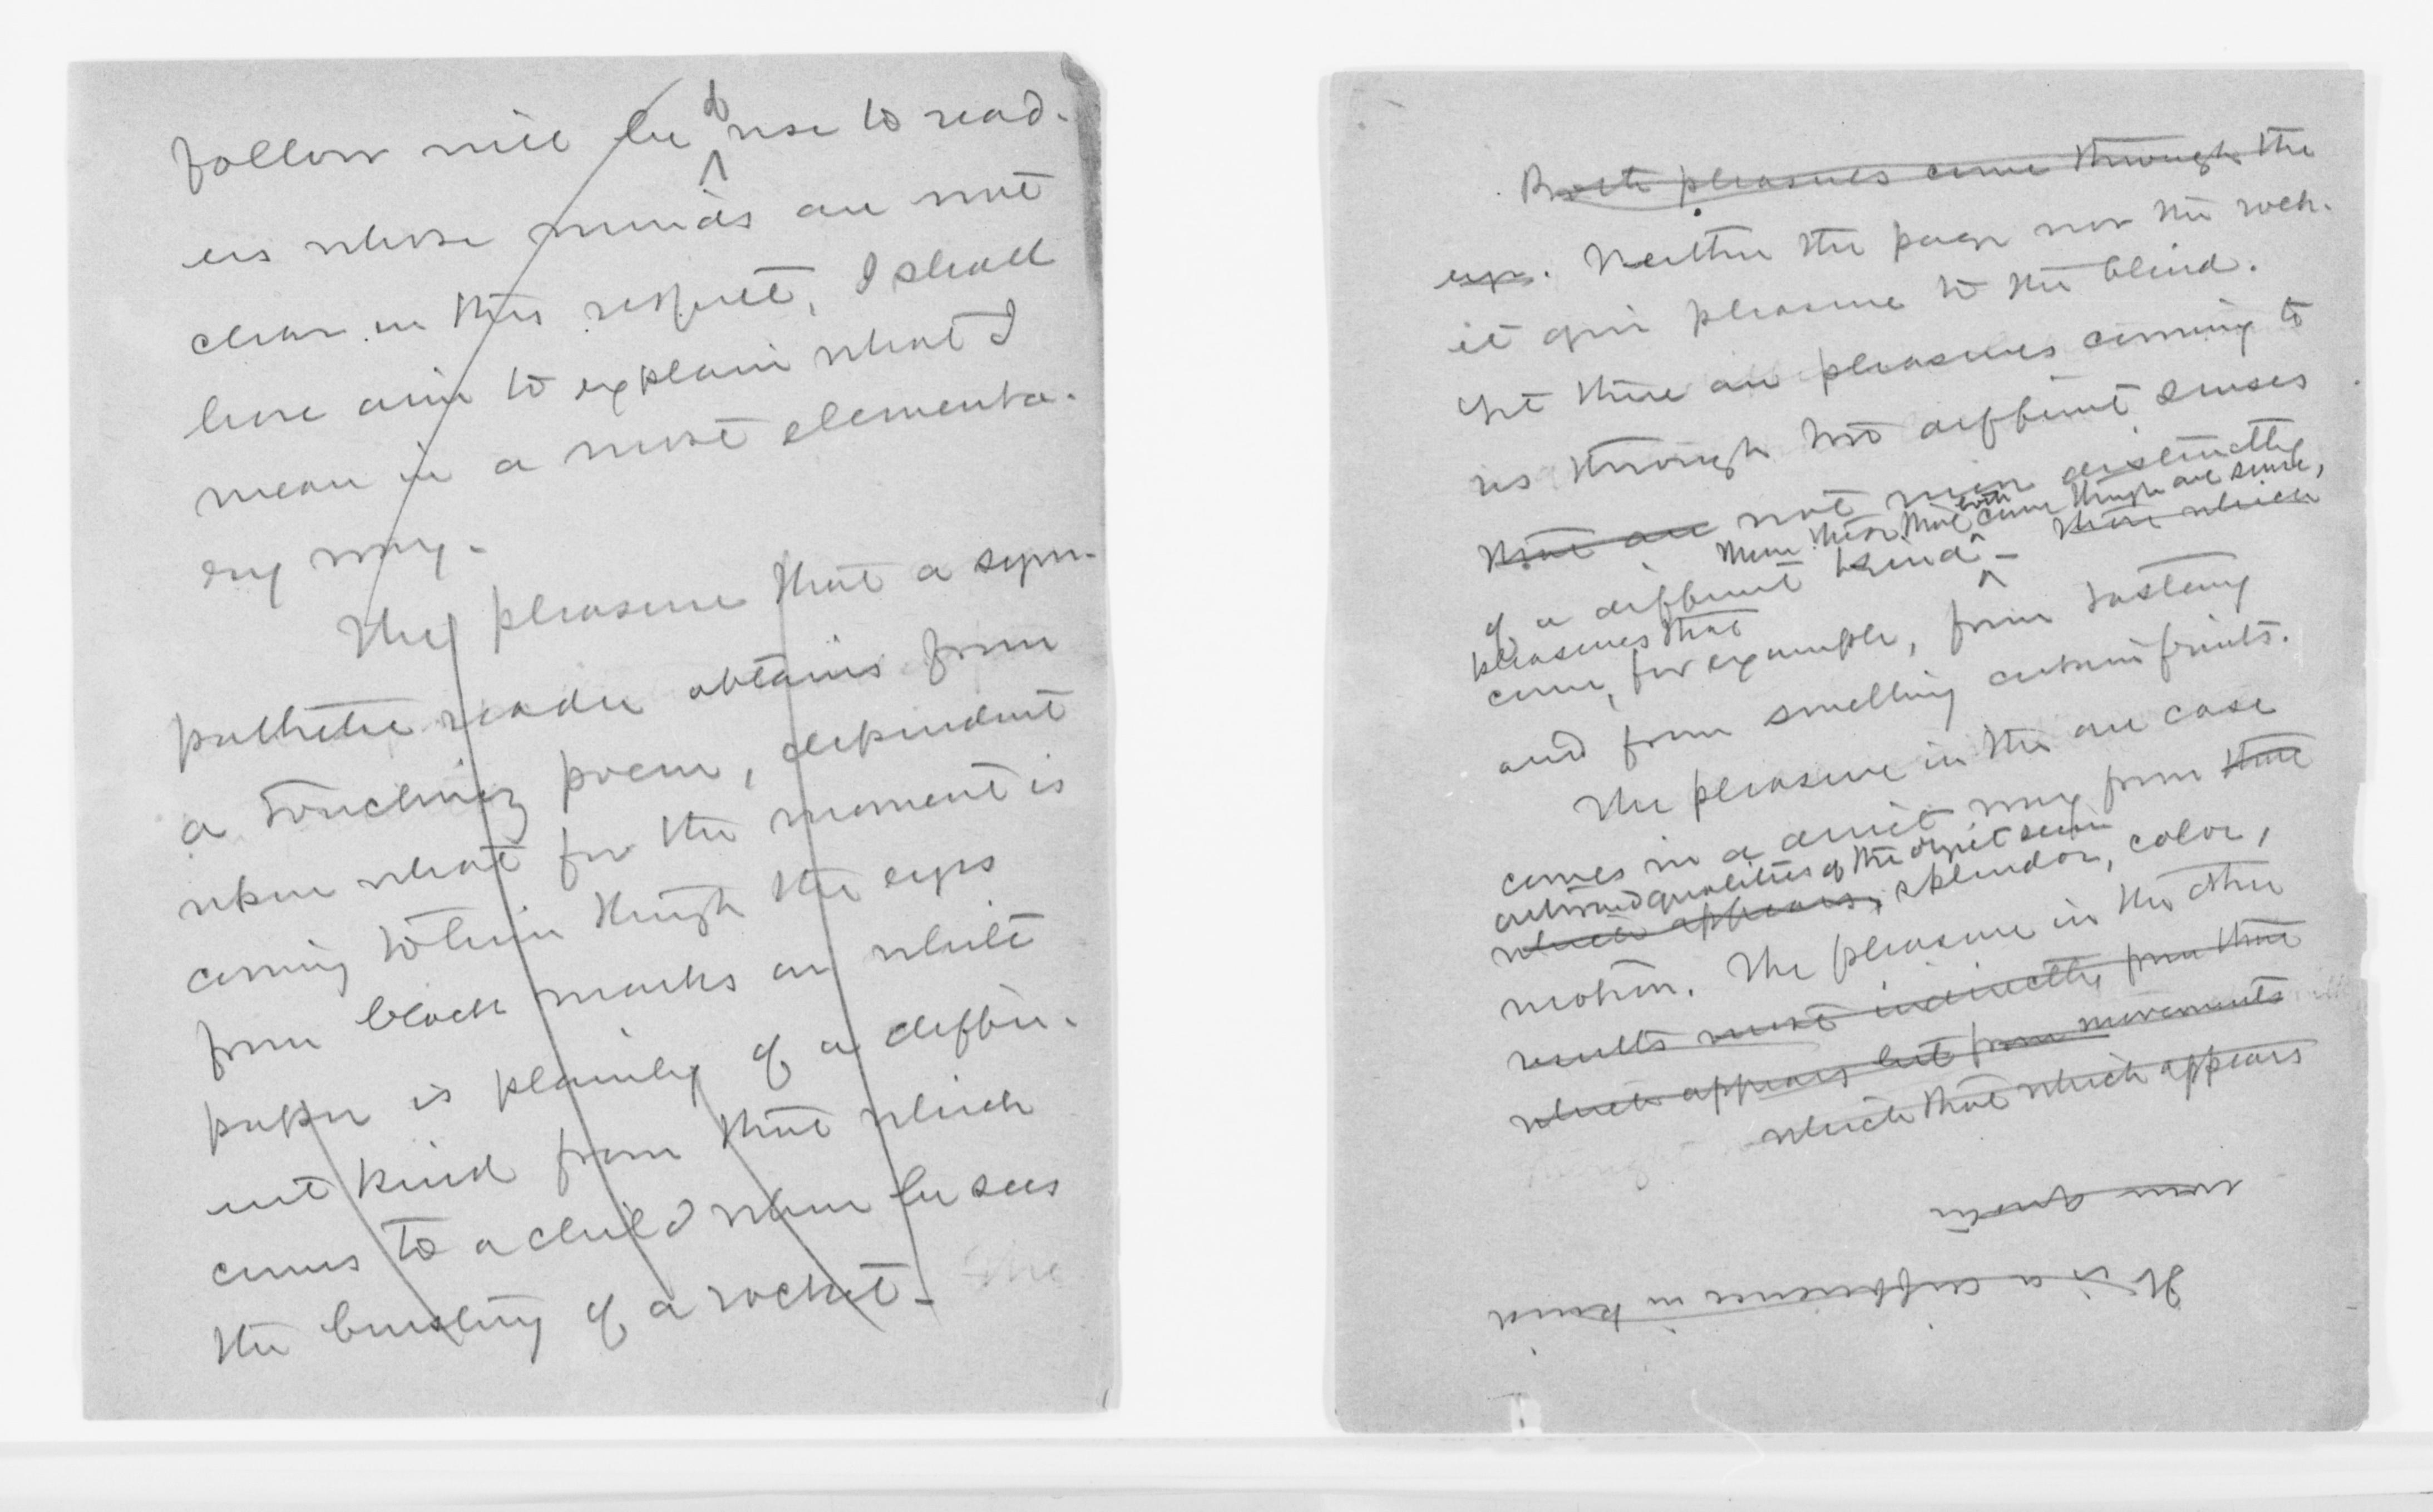 follow will be of use to read-
ers whose minds are not
clear in this respect, I shall
here aim to explain what I
mean in a most elementa-
ry way.
The pleasure that a sym-
pathetic reader obtains from
a touching poem, dependent
upon what for the moment is
coming to him through the eyes
from black marks on white
paper is plainly of a differ-
ent kind from that which
comes to a child when he sees
the bursting of a rocket. The
Both pleasures come through the
eyes. Neither the page nor the rock-
et give pleasure to the blind.
Yet there are pleasures coming to
us through two different senses
that are not more distinctly
than these that both come through one sense,
of a different kind – those which
pleasures that
come, for example, from tasting
and from smelling certain fruits.
The pleasure in the one case
comes in a direct way from that
outward qualities of the object seen
which appears, splendor, color,
motion. The pleasure in the other
results most indirectly from that
which appears but from movements
which that which appears
It is a difference in kind